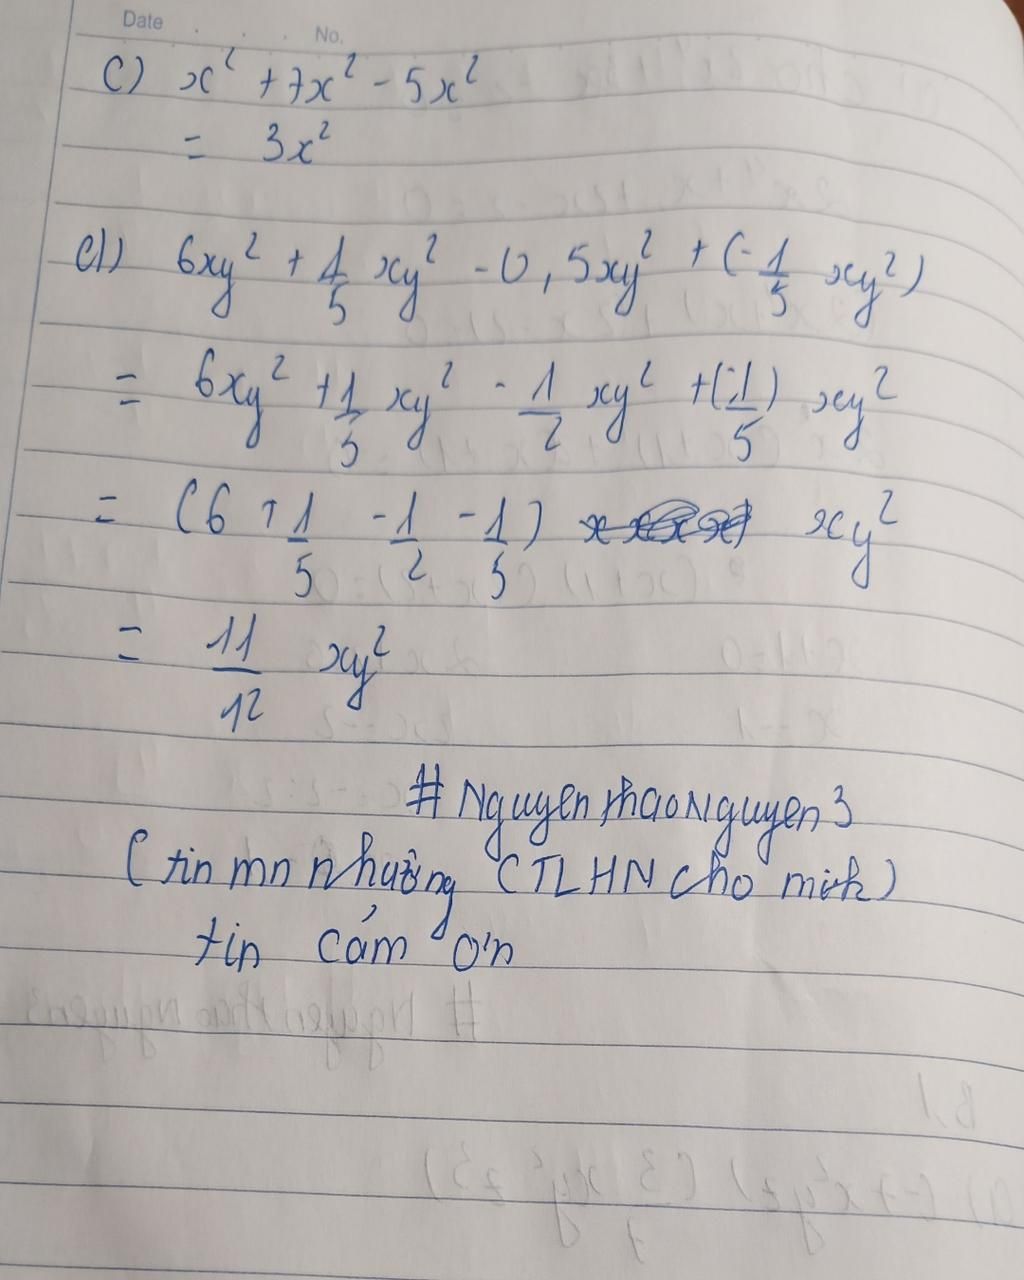 Date . . . No.
c) x² + 7x² - 5x²
= 3x²
d) 6xy² + 1/5 xy² - 0,5xy² + (-1/5 xy²)
= 6xy² + 1/5 xy² - 1/2 xy² + (-1/5) xy²
= (6 + 1/5 - 1/2 - 1/5) xy²
= 11/12 xy²
# NguyenthaoNguyen3
( tin mn nhường CTLHN cho mình)
tin cảm ơn